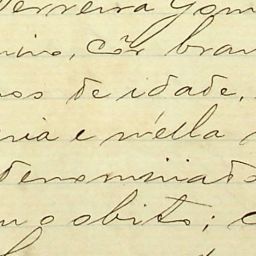 Ferreira Gom
nino, côr bran
nos de idade,
ria e n'ella
denominado
u o obito; c